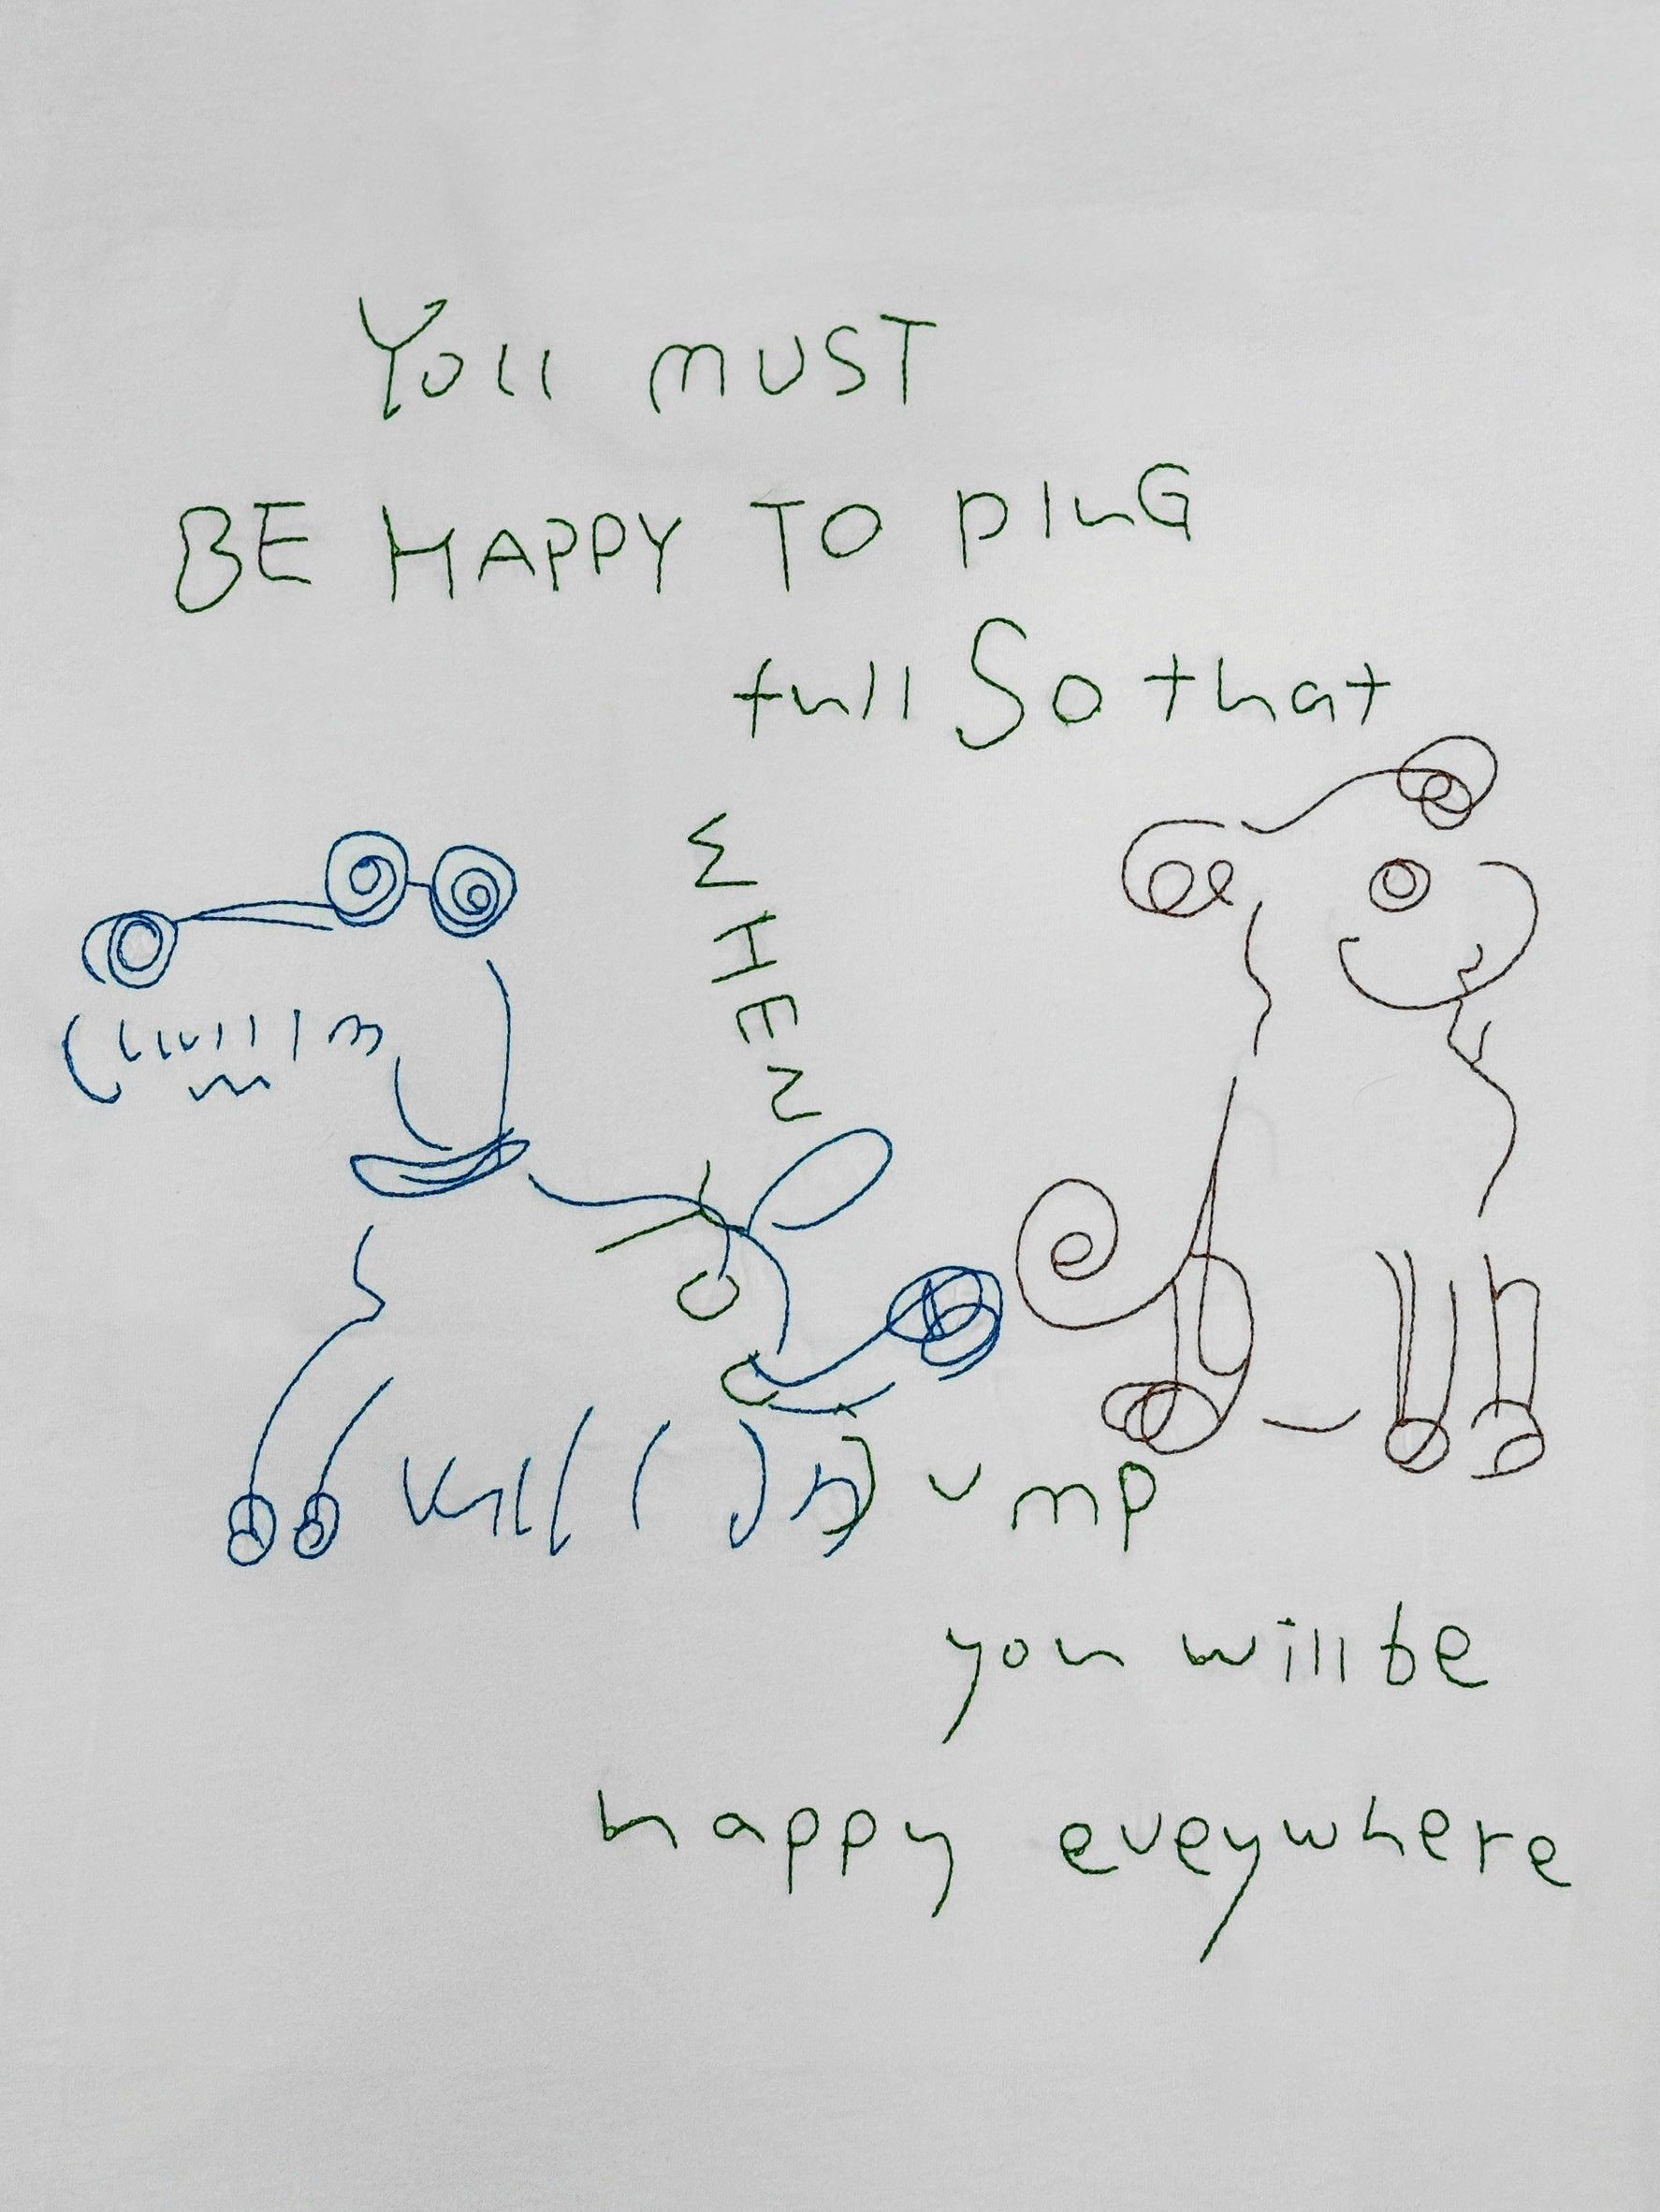 You MUST
BE HAPPY TO PlnG
full So that
WHEN
YOU
Jump
you will be
happy eveywhere